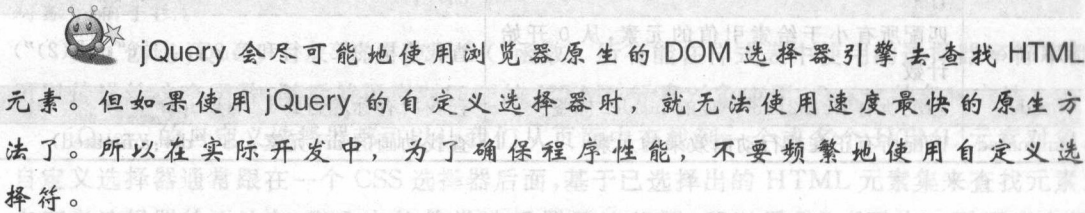 jQuery 会尽可能地使用浏览器原生的 DOM 选择器引擎去查找 HTML
元素。但如果使用 jQuery 的自定义选择器时，就无法使用速度最快的原生方
法了。所以在实际开发中，为了确保程序性能，不要频繁地使用自定义选
择符。